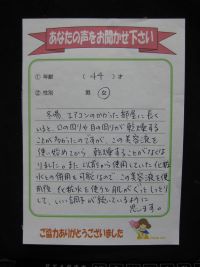 あなたの声をお聞かせ下さい
① 年齢 ( 44 ) 才
② 性別 男 女
冬場 エアコンのかかった部屋に長く
いると、口の回りや目の回りが乾燥する
ことが多かったのですが、この美容液を
使い始めてから 乾燥することがなくな
りました。また 以前から使用していた化粧
水との併用も可能なので この美容液を
使用後 化粧水を使うと肌がしっとり
して、いい調子が続いているように
思います。
ご協力ありがとうございました